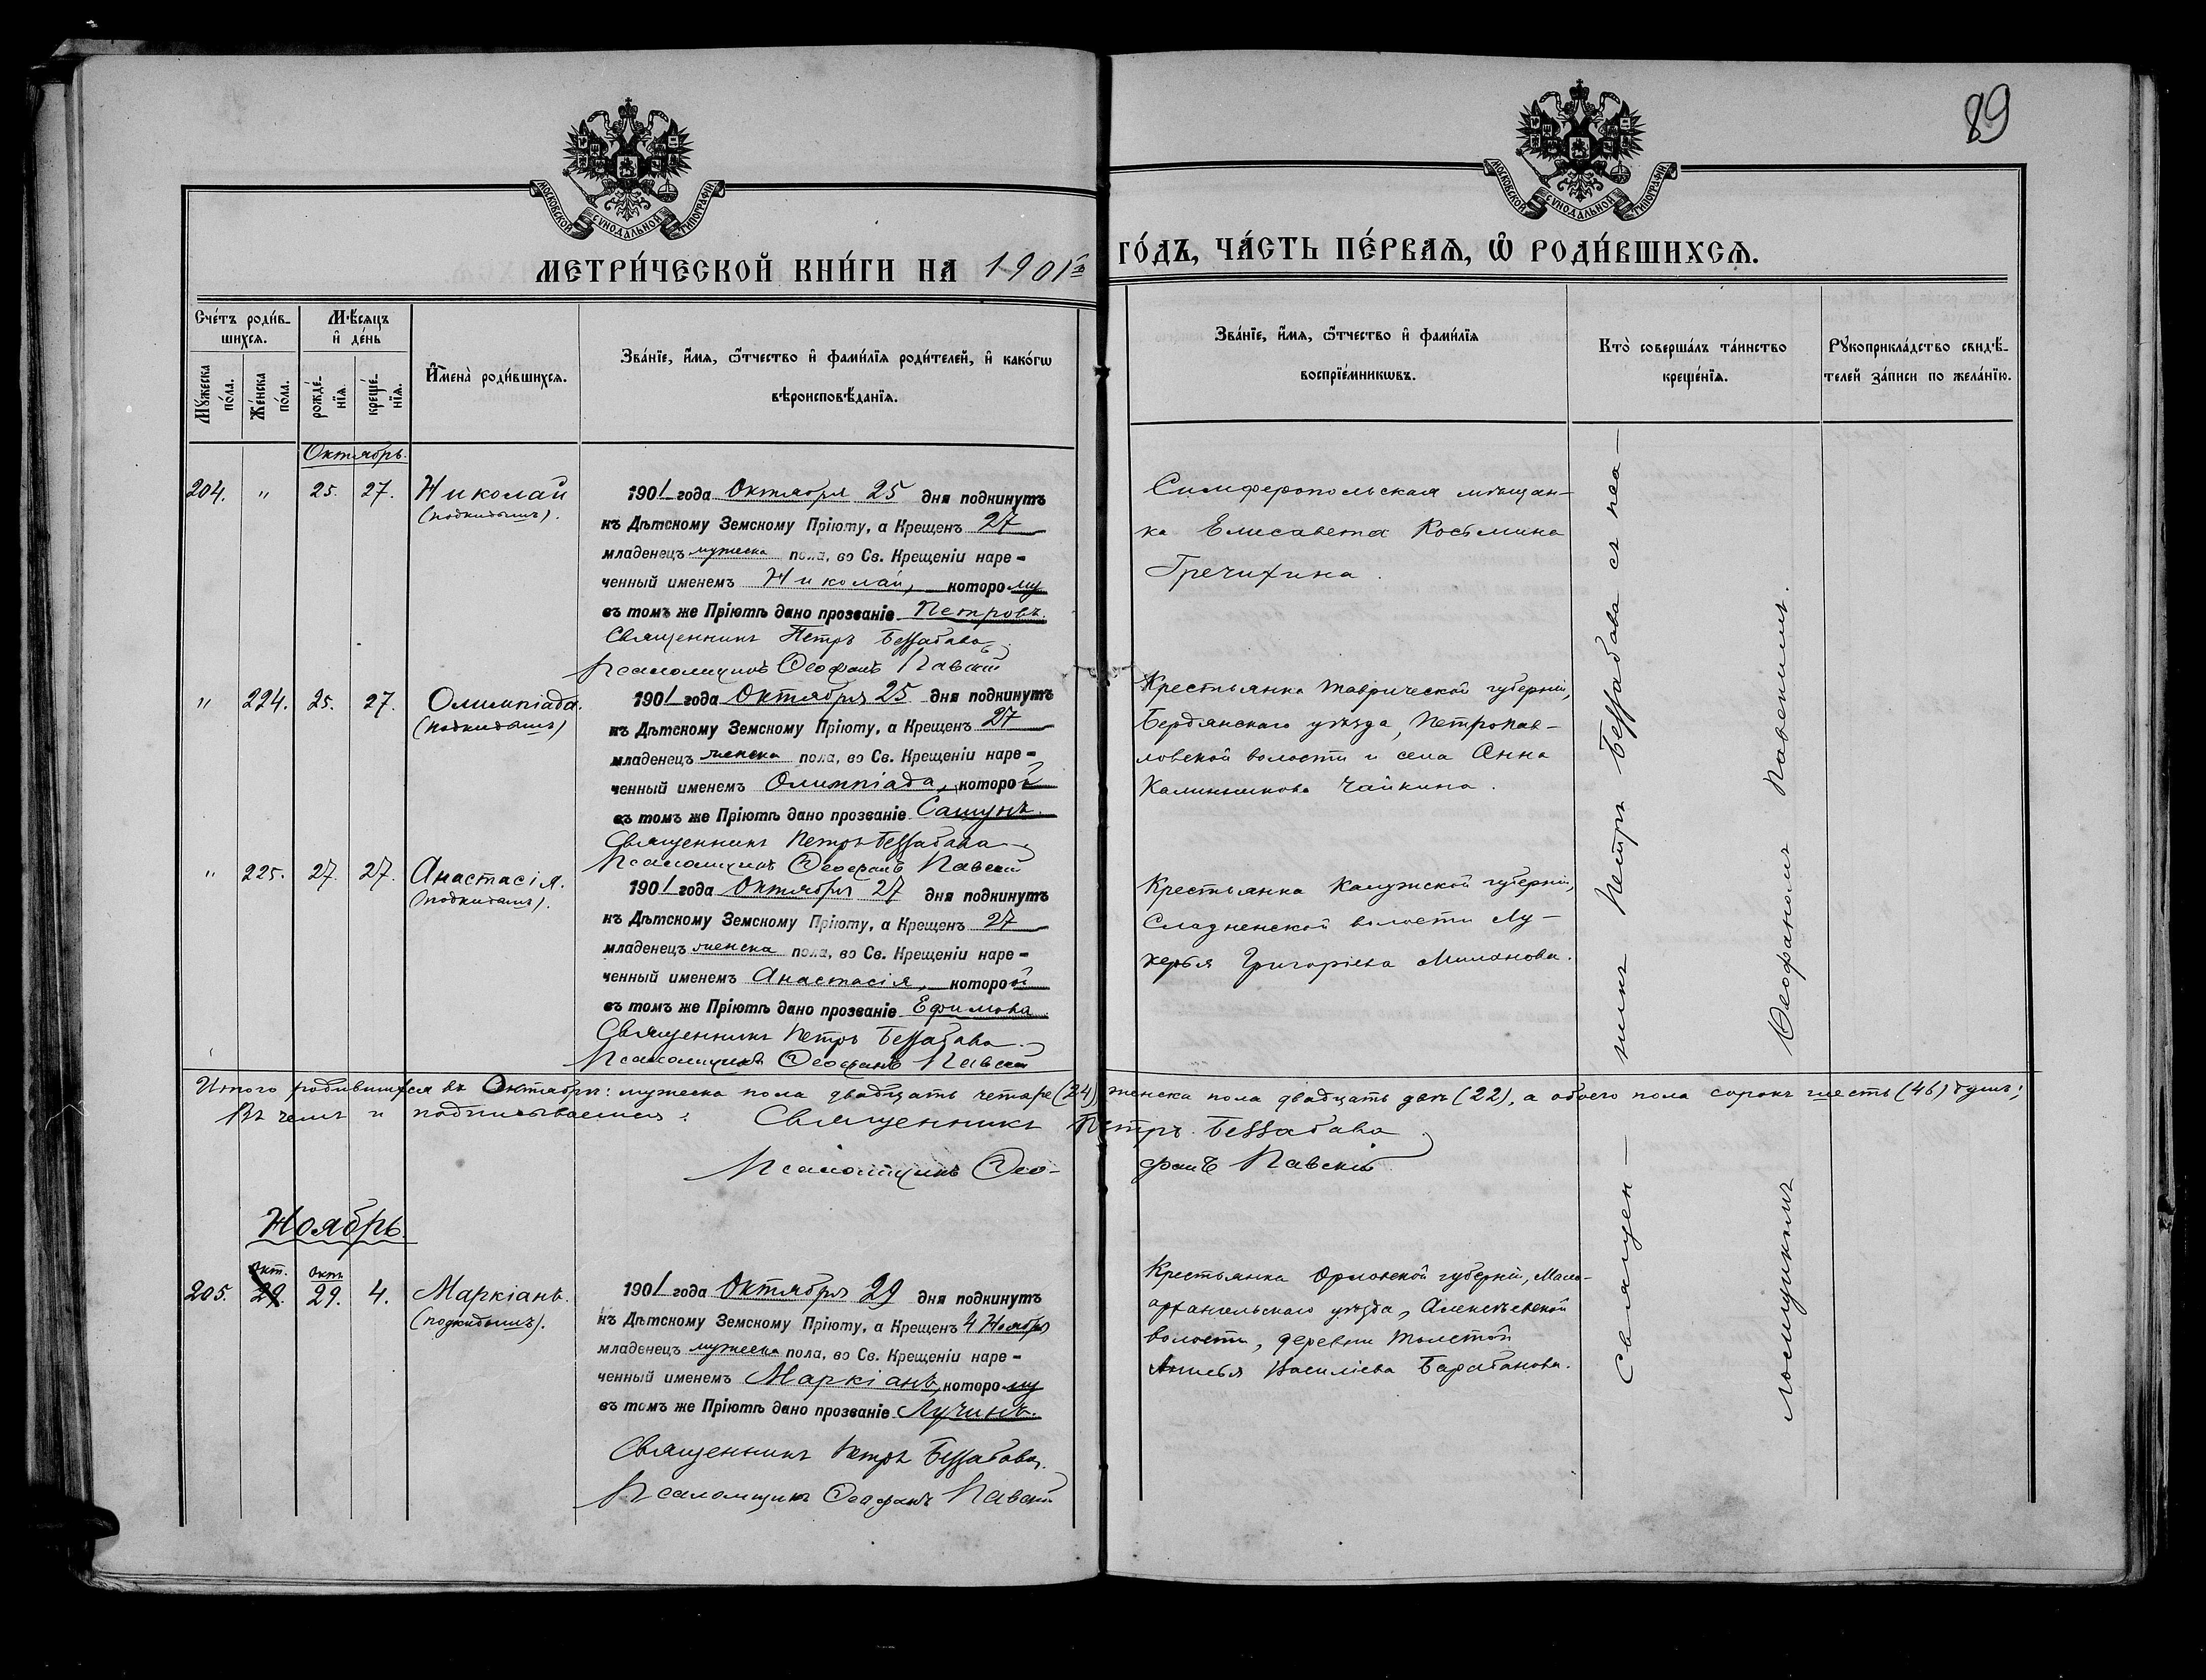 89
МОСКОВСКОЙ СѴНОДАЛЬНОЙ ТИПОГРАФІИ
МОСКОВСКОЙ СѴНОДАЛЬНОЙ ТИПОГРАФІИ
МЕТРИ́ЧЕСКОЙ КНИ́ГИ НА 1901й ГО́ДЪ, ЧА́СТЬ ПЕ́РВАѦ, Ѡ҆ РОДИ́ВШИХСѦ.
Сче́тъ роди́в-
шихсѧ.
Мꙋ́жеска по́ла.
Же́нска по́ла.
Мѣ́сѧцъ
и҆ де́нь
рожде́-
нїѧ.
креще́-
нїѧ.
И҆мена̀ роди́вшихсѧ.
Зва́нїе, и҆́мѧ, ѻ҆́тчество и҆ фамѝлїѧ роди́телей, и҆ како́гѡ
вѣроисповѣ́данїѧ.
Зва́нїе, и҆́мѧ, ѻ҆́тчество и҆ фами́лїѧ
воспрїе́мникѡвъ.
Кто̀ соверша́лъ та́инство
креще́нїѧ.
Рꙋкоприкла́дство свидѣ́-
телей за́писи по жела́нїю.
Октябрь.
204. " 25. 27. Николай
(подкидышъ).
1901 года Октября 25 дня подкинутъ
къ Дѣтскому Земскому Пріюту, а Крещенъ 27
младенецъ мужеска пола, во Св. Крещеніи наре-
ченный именемъ Николай, которому
въ томъ же Пріютѣ дано прозваніе Петровъ.
Священникъ Петръ Беззабава
Псаломщикъ Ѳеофанъ Павскій
Симферопольская мѣщан-
ка Елисавета Косьмина
Гречихина.
" 224. 25. 27. Олимпіада.
(подкидышъ)
1901 года Октября 25 дня подкинутъ
къ Дѣтскому Земскому Пріюту, а Крещенъ 27
младенецъ женска пола, во Св. Крещеніи наре-
ченный именемъ Олимпіада, которой
въ томъ же Пріютѣ дано прозваніе
Священникъ Петръ Беззабава
Псаломщикъ Ѳеофанъ Павскій
Крестьянка Таврической губерніи,
Бердянскаго уѣзда, Петропав-
ловской волости и села Анна
Калинникова Чайкина.
" 225. 27. 27. Анастасія.
(подкидышъ).
1901 года Октября 27 дня подкинутъ
къ Дѣтскому Земскому Пріюту, а Крещенъ 27
младенецъ женска пола, во Св. Крещеніи наре-
ченный именемъ Анастасія, которой
въ томъ же Пріютѣ дано прозваніе Ефимова
Священникъ Петръ Беззабава
Псаломщикъ Ѳеофанъ Павскій
Крестьянка Калужской губерніи,
волости Лу-
керья Григоріева Миланова.
Итого родившихся въ Октябрѣ: мужеска пола двадцать четыре (24) женска пола двадцать двѣ (22), а обоего пола сорокъ шесть (46) душъ;
Въ чемъ и подписываемся: Священникъ Петръ Беззабава
Псаломщикъ Ѳео- фанъ Павскій
Ноябрь.
окт. окт.
205. 29. 29. 4. Маркіанъ.
(подкидышъ).
1901 года Октября 29 дня подкинутъ
къ Дѣтскому Земскому Пріюту, а Крещенъ 4 Ноября
младенецъ мужеска пола, во Св. Крещеніи наре-
ченный именемъ Маркіанъ, которому
въ томъ же Пріютѣ дано прозваніе Лучинъ.
Священникъ Петръ Беззабава.
Псаломщикъ Ѳеофанъ Павскій
Крестьянка Орловской губерніи, Мало-
архангельскаго уѣзда, Алексѣевской
волости, деревни Толстой
Василіева Барабанова.
Священ- никъ Петръ Беззабава съ пса-
ломщикомъ Ѳеофаномъ Павскимъ.